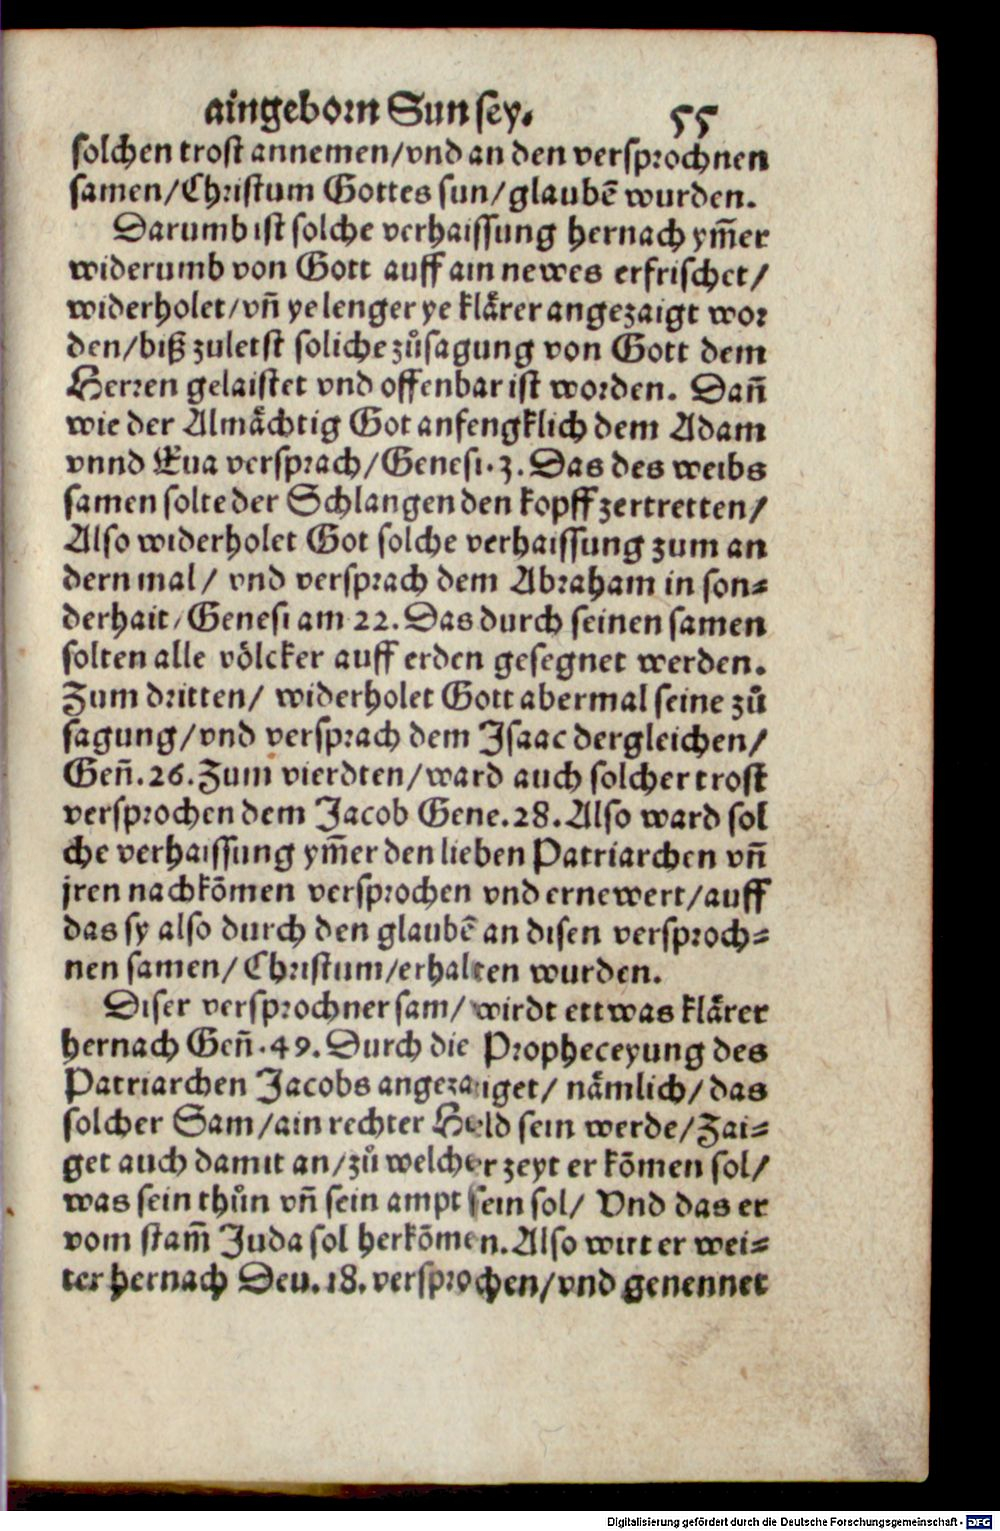 aingeborn Sun sey. 55
solchen trost annemen/vnd an den versprochnen
samen/Christum Gottes sun/glaubē wurden.
Darumb ist solche verhaissung hernach ym̄er
widerumb von Gott auff ain newes erfrischet/
widerholet/vn̄ ye lenger ye klärer angezaigt wor
den/biß zuletst soliche zůsagung von Gott dem
Herren gelaistet vnd offenbar ist worden. Dan̄
wie der Almächtig Got anfengklich dem Adam
vnnd Eua versprach/Genesi.3. Das des weibs
samen solte der Schlangen den kopff zertretten/
Also widerholet Got solche verhaissung zum an
dern mal/ vnd versprach dem Abraham in son⸗
derhait/Genesi am 22. Das durch seinen samen
solten alle völcker auff erden gesegnet werden.
Zum dritten/ widerholet Gott abermal seine zů
sagung/vnd versprach dem Isaac dergleichen/
Gen̄.26. Zum vierdten/ward auch solcher trost
versprochen dem Jacob Gene.28. Also ward sol
che verhaissung ym̄er den lieben Patriarchen vn̄
jren nachkōmen versprochen vnd ernewert/auff
das sy also durch den glaubē an disen versproch⸗
nen samen/Christum/erhalten wurden.
Diser versprochner sam/ wirdt ettwas klärer
hernach Gen̄.49. Durch die Propheceyung des
Patriarchen Jacobs angezaiget/ nämlich/das
solcher Sam/ain rechter Held sein werde/Zai⸗
get auch damit an/zů welcher zeyt er kōmen sol/
was sein thůn vn̄ sein ampt sein sol/ Vnd das er
vom stam̄ Juda sol herkōmen. Also wirt er wei⸗
ter hernach Deu.18. versprochen/vnd genennet
Digitalisierung gefördert durch die Deutsche Forschungsgemeinschaft - DFG